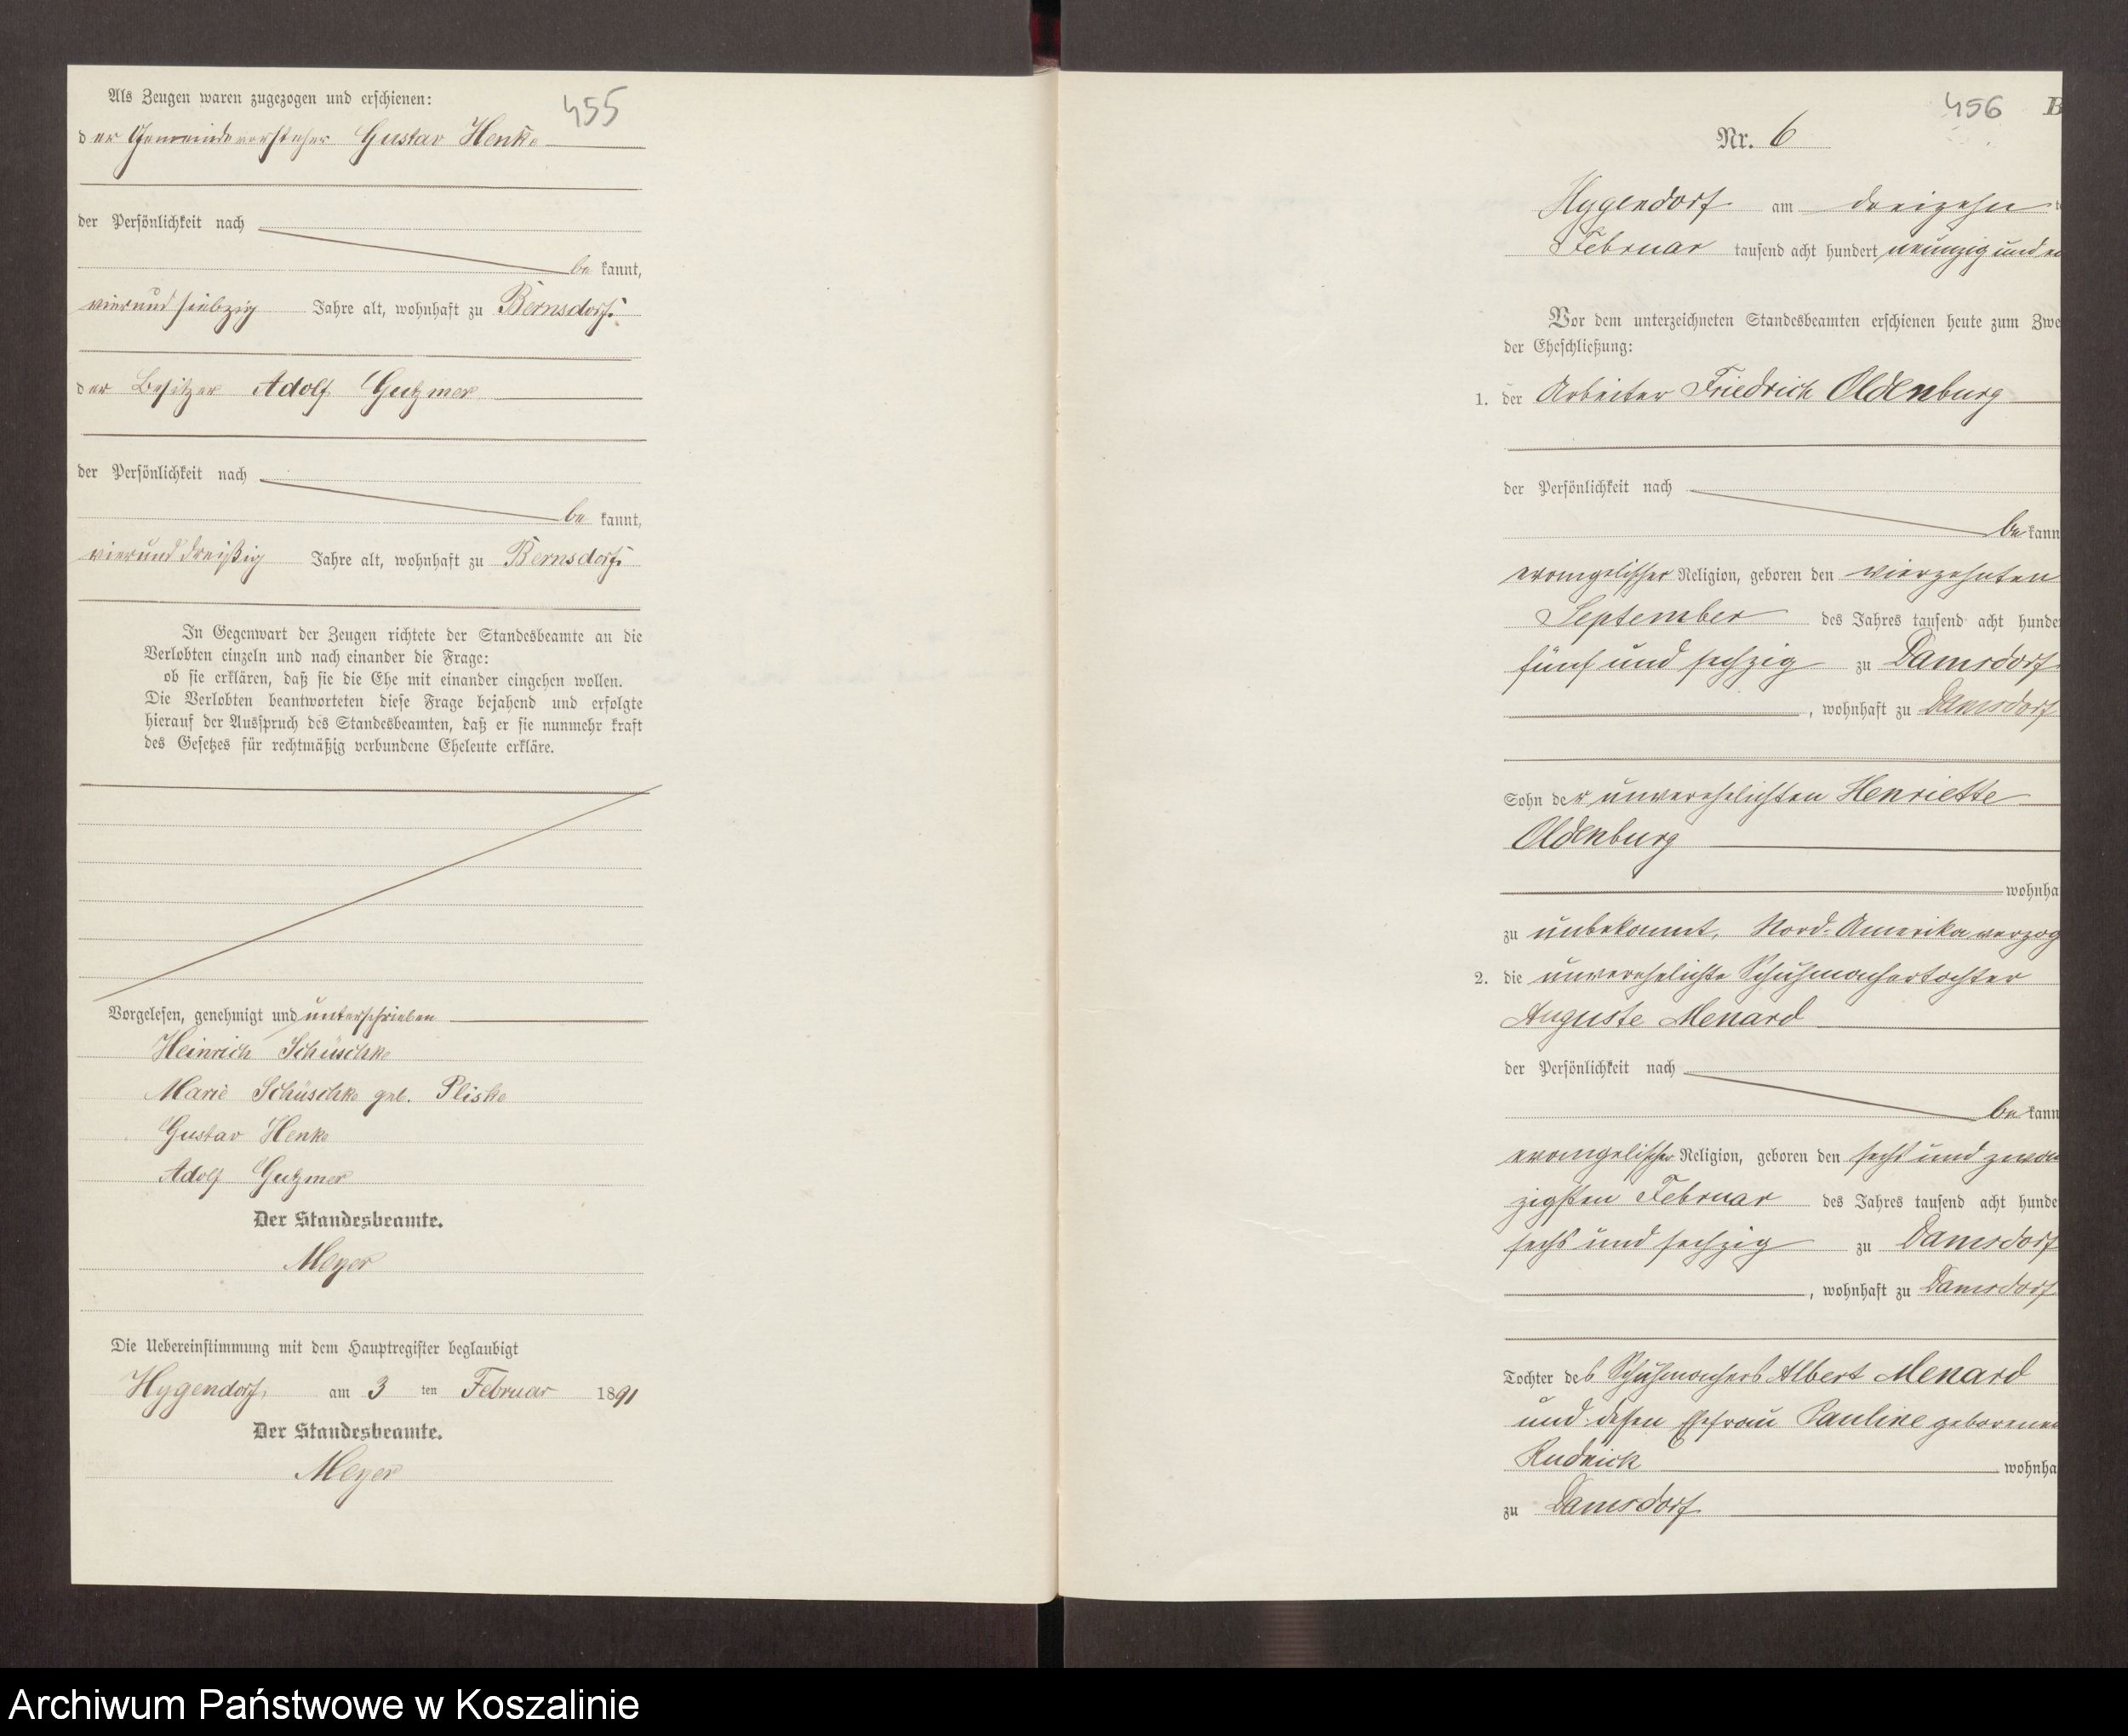 455
Als Zeugen waren zugezogen und erschienen:
der Gemeindevorsteher Gustav Henke
der Persönlichkeit nach
be kannt,
vierundsiebzig Jahre alt, wohnhaft zu Bernsdorf.
der Besitzer Adolf Gutzmer
der Persönlichkeit nach
be kannt,
vierunddreißig Jahre alt, wohnhaft zu Bernsdorf.
In Gegenwart der Zeugen richtete der Standesbeamte an die
Verlobten einzeln und nach einander die Frage:
ob sie erklären, daß sie die Ehe mit einander eingehen wollen.
Die Verlobten beantworteten diese Frage bejahend und erfolgte
hierauf der Ausspruch des Standesbeamten, daß er sie nunmehr kraft
des Gesetzes für rechtmäßig verbundene Eheleute erkläre.
Vorgelesen, genehmigt und unterschrieben
Heinrich Schüschke
Marie Schüschke geb. Pliske
Gustav Henke
Adolf Gutzmer
Der Standesbeamte.
Meyer
Die Uebereinstimmung mit dem Hauptregister beglaubigt
Hygendorf, am 3 ten Februar 1891
Der Standesbeamte.
Meyer
456 B
Nr. 6
Hygendorf am dreizehn t
Februar tausend acht hundert neunzig und ei
Vor dem unterzeichneten Standesbeamten erschienen heute zum Zwe
der Eheschließung:
1. der Arbeiter Friedrich Oldenburg
der Persönlichkeit nach
be kann
evangelischer Religion, geboren den vierzehnten
September des Jahres tausend acht hunde
fünf und sechzig zu Damsdorf
, wohnhaft zu Damsdorf
Sohn der unverehelichten Henriette
Oldenburg
wohnha
zu unbekannt, Nord-Amerika verzog
2. die unverehelichte Schuhmachertochter
Auguste Menard
der Persönlichkeit nach
be kann
evangelischer Religion, geboren den sechs und zwan
zigsten Februar des Jahres tausend acht hunde
sechs und sechzig zu Damsdorf
, wohnhaft zu Damsdorf
Tochter des Schuhmachers Albert Menard
und dessen Ehefrau Pauline geborenen
Rudnick wohnha
zu Damsdorf
Archiwum Państwowe w Koszalinie